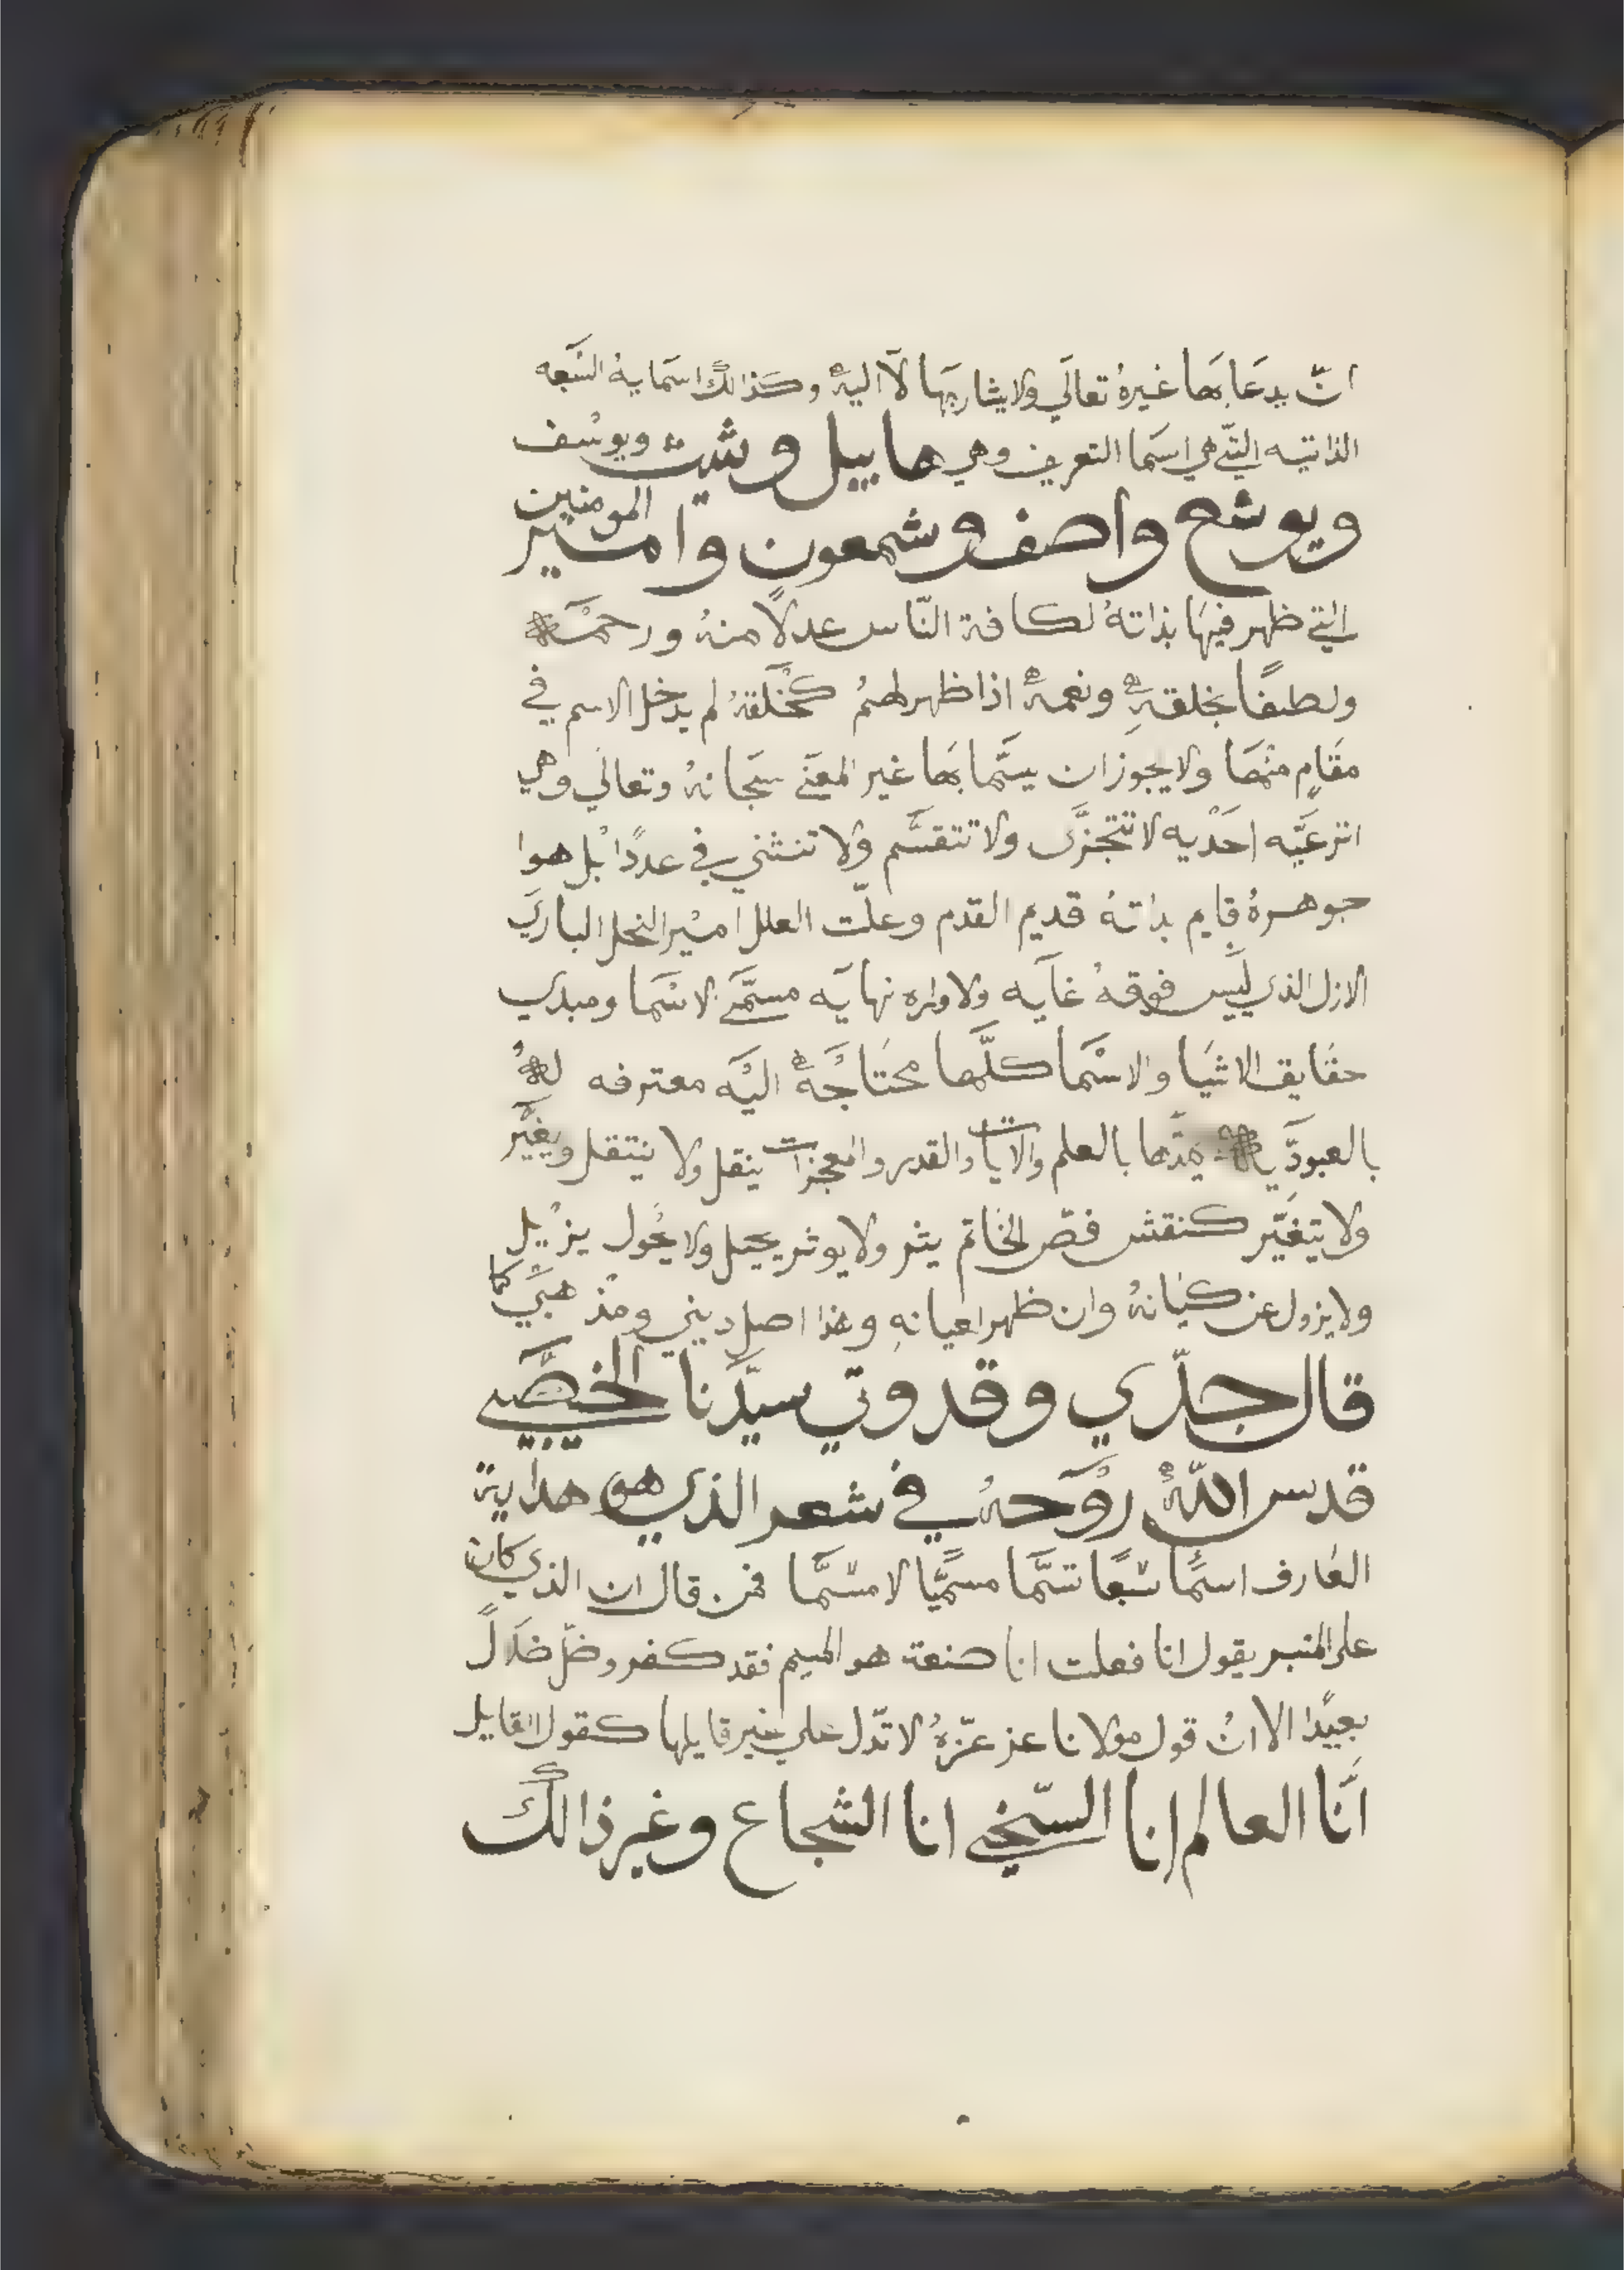 انّ يدعَا بهَا غيرهُ تعالَي ولا يشار بهَا لاّ اليهْ وكذالكَ اسمَايهُ السَّبعه
الذاتيه التّي هي اسمَا التعريف وهي هابيل وشيث ويوسُف
ويوشع واصف وشمعون وامير المومنين
التي ظهر فيهَا بذاتهُ لكافة النّاس عدلاً منهُ ورحمَة
ولطفًا بخلقهِ ونعمهْ اذا ظهر لهمُ كخَلقهُ لم يدخل الاسم في
مقَامٍ منْهَا ولا يجوز ان يسَمَّا بهَا غير المعنَي سبحَانهُ وتعالَي وهي
انزعيَّه احَدْيه لا تتجزَّى ولا تتقسَّم ولا تنثني في عددًا بل هوا
جوهرهُ قايم بذاتهُ قديم القدم وعلّت العلل اميْر النحل الباري
الازل الذي ليَس فوقهُ غايَه ولا وراه نهايَه مسمَّي الاسْمَا ومبدي
حقَايق الاشَيا والاسْمَا كلَّها محتَاجَهْ اليْه معترفه لهُ
بالعبودّ يمدّها بالعلم والايات والقدر والمعجزات ينقل ولا ينتقل ويغيَّر
ولا يتغيَّر كنقش فصّ الخَاتم يثر ولا يوثر يحيل ولا يحُول يزيْل
ولا يزول عن كيَانهُ وان ظهر لعيانهِ وهذا اصل ديني ومذهبَي كما
قال جدّي وقدوتي سيّدنا الخصَيبي
قدس اللهُ روْحهُ في شعر الذي هو هداية
العَارف اسمًا سَبعًا تسمَّا مسمَّيًا لا مسْمَّا فمن قال ان الذي كان
على المنبر يقول انا فعلت انا صنعة هو الميم فقد كفر وضلّ ضلالً
بعيدًا الا انْ قول مولانا عز عزّهُ لا تدّل علي غير قايلها كقول القايل
انَّا العالم انا السّخي انا الشجاع وغير ذالكَ